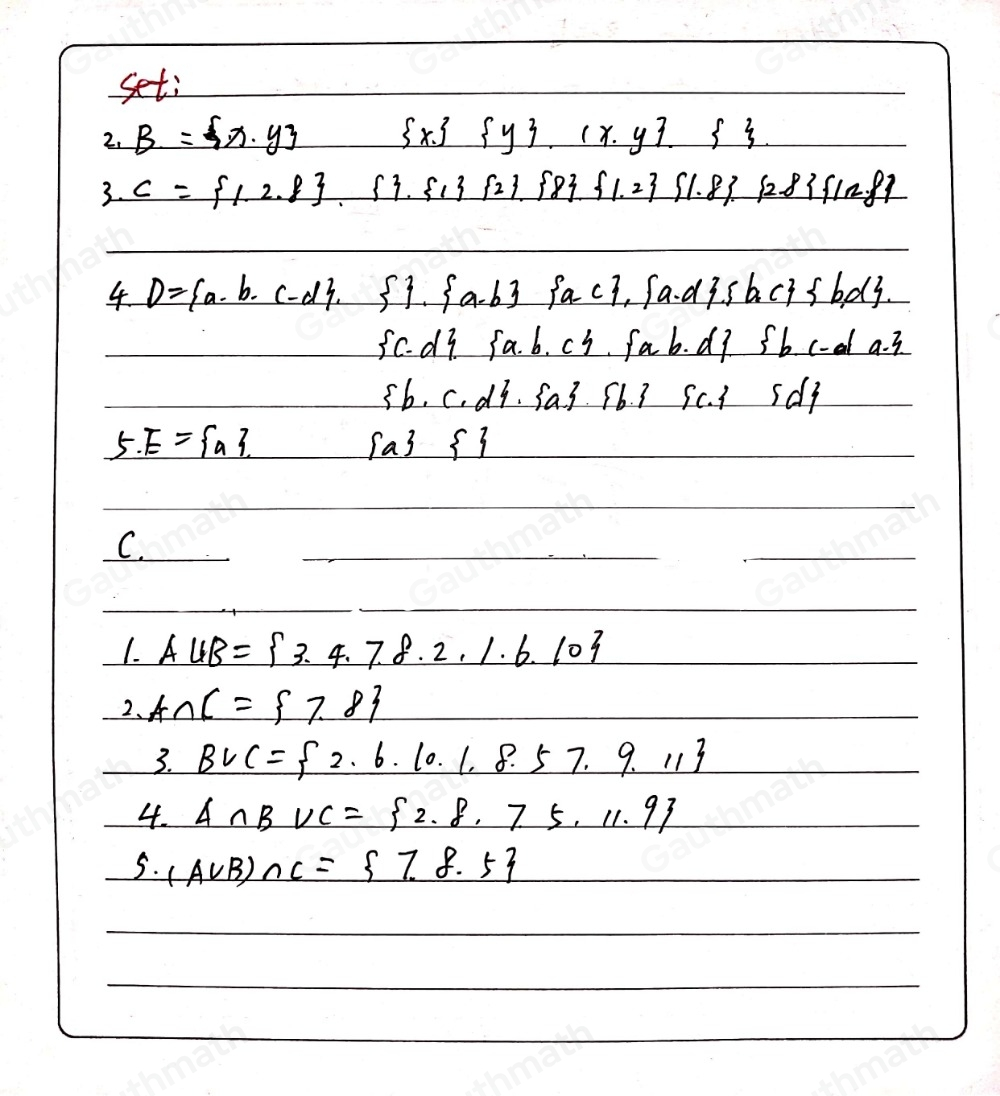 Set:
2. B = {x. y} {x.} {y}. (x. y}. { }.
3. C = {1. 2. 8}. { }. {1} {2}. {8} {1.2} {1.8}. {2.8} {1.2.8}
4. D = {a. b. c-d}. { }. {a-b} {a c}, {a.d} {b.c} {b,d}.
{c-d}. {a. b. c}. {a b. d} {b. c-d a.}
{b. c. d}. {a}. {b.} {c.} {d}
5. E = {a}. {a} { }
C.
1. A U B = {3. 4. 7. 8. 2. 1. 6. 10}
2. A ∩ C = {7. 8}
3. B ∪ C = {2. 6. 10. 1. 8. 5 7. 9. 11}
4. A ∩ B ∪ C = {2. 8. 7. 5. 11. 9}
5. (A ∪ B) ∩ C = {7. 8. 5}
Gauthmath